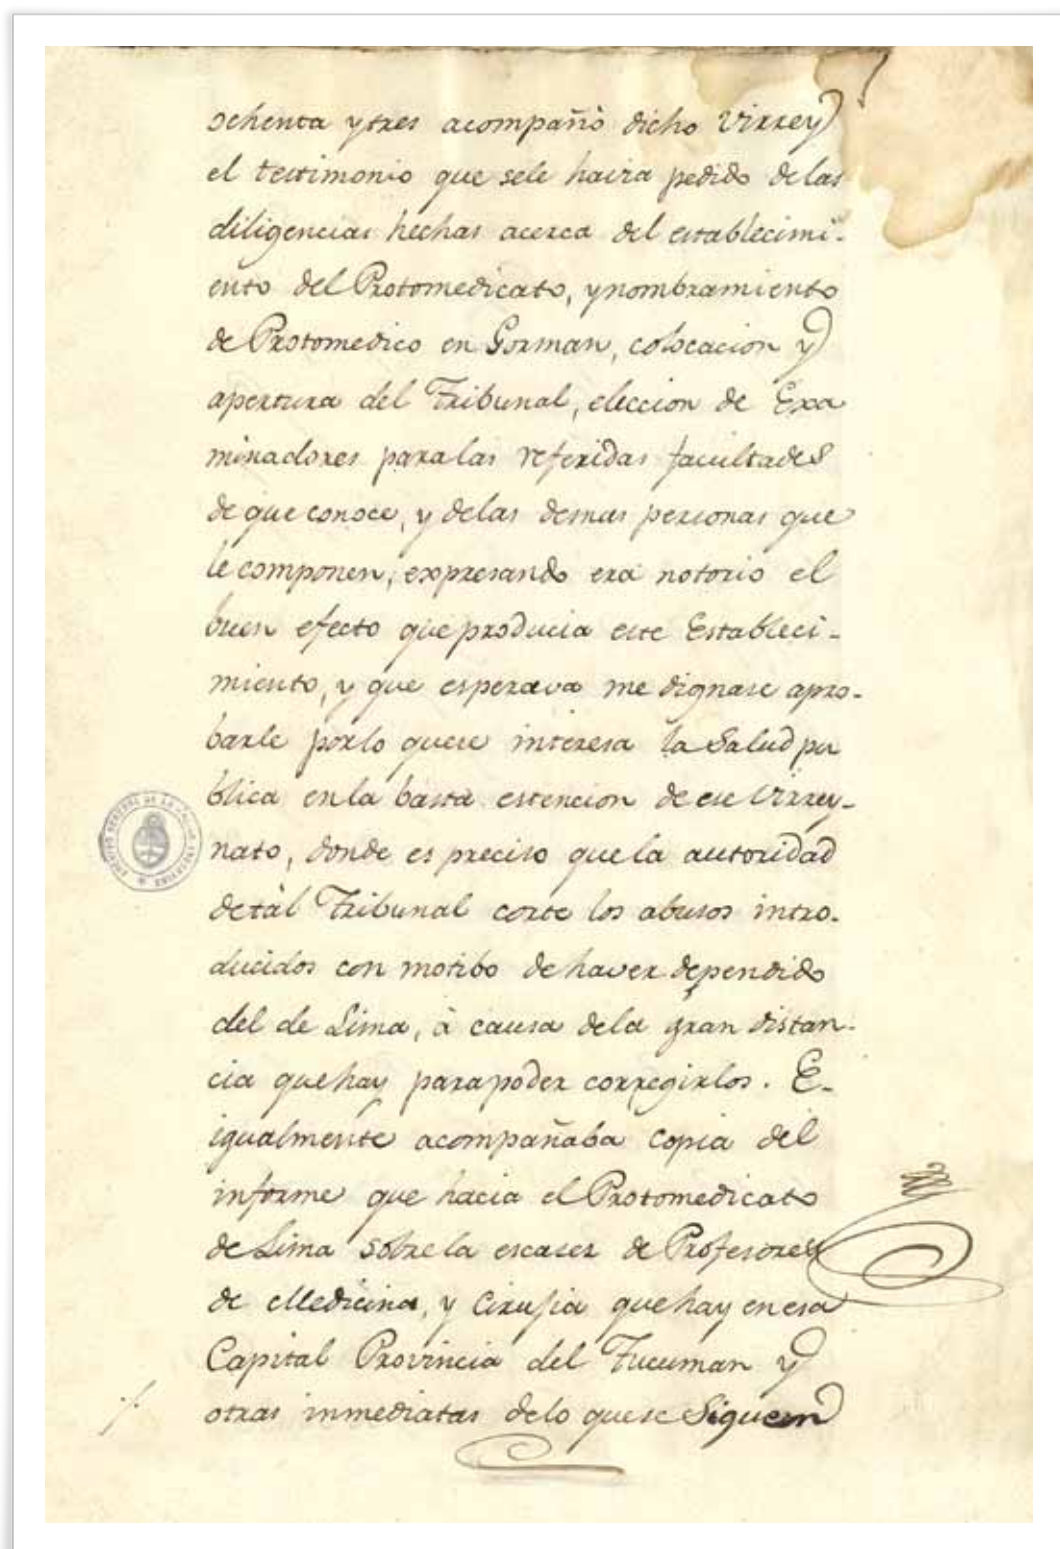 ochenta y tres acompañó dicho Virrey
el testimonio que sele havia pedido delas
diligencias hechas acerca del establecimi-
ento del Protomedicato, y nombramiento
de Protomedico en Gorman, colocacion y
apertura del Tribunal, eleccion de Exa
minadores paralas referidas facultades
de que conoce, y delas demas personas que
le componen, expresando era notorio el
buen efecto que producia este Estableci-
miento, y que esperava me dignase apro-
barle porlo quese interesa la Salud pu
blica enla basta estencion de ese Virrey-
nato, donde es preciso que la autoridad
detàl Tribunal corte los abusos intro-
ducidos con motibo de haver dependido
del de Lima, à causa dela gran distan-
cia que hay para poder corregirlos. E-
igualmente acompañaba copia del
informe que hacia el Protomedicato
de Lima sobre la escases de Profesores
de Medicina, y Cirujia que hay en esa
Capital Provincia del Tucuman y
otras inmediatas delo quese Siguen